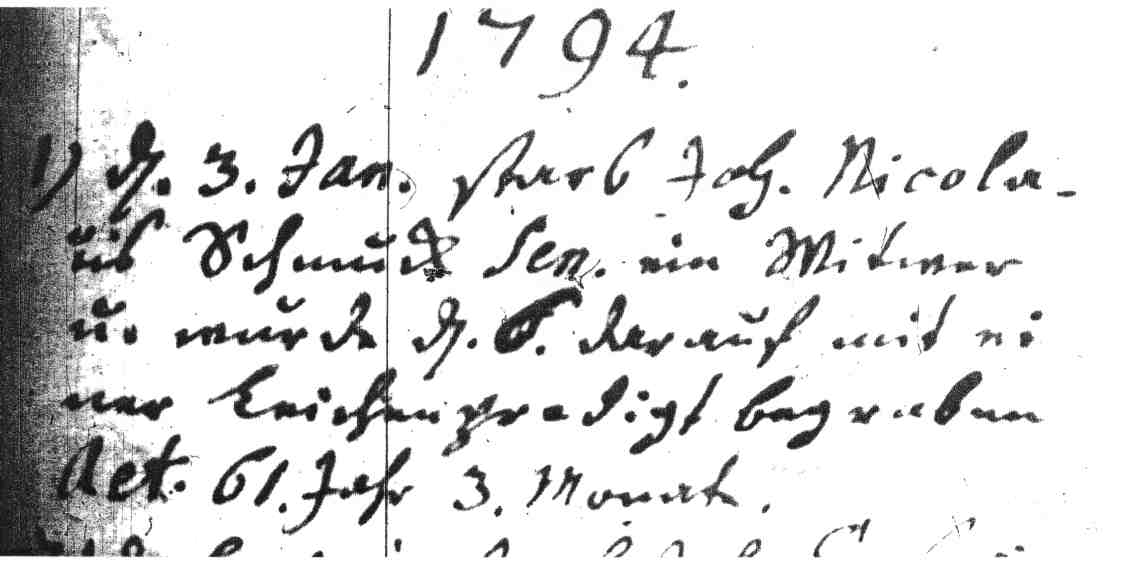 1794.
1) d. 3. Jan. starb Joh. Nicola-
us Schmuck Sen. ein Witwer
u. wurde d. 6. darauf mit ei
ner Leichenpredigt begraben
Aet. 61. Jahr 3. Monat.